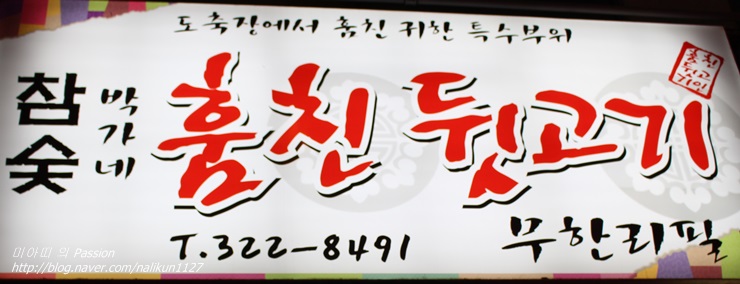 도축장에서 훔친 귀한 특수부위
참숯
박가네
훔친 뒷고기
훔친
뒷고
기의
T.322-8491
무한리필
미아띠 의 Passion
http://blog.naver.com/nalikun1127